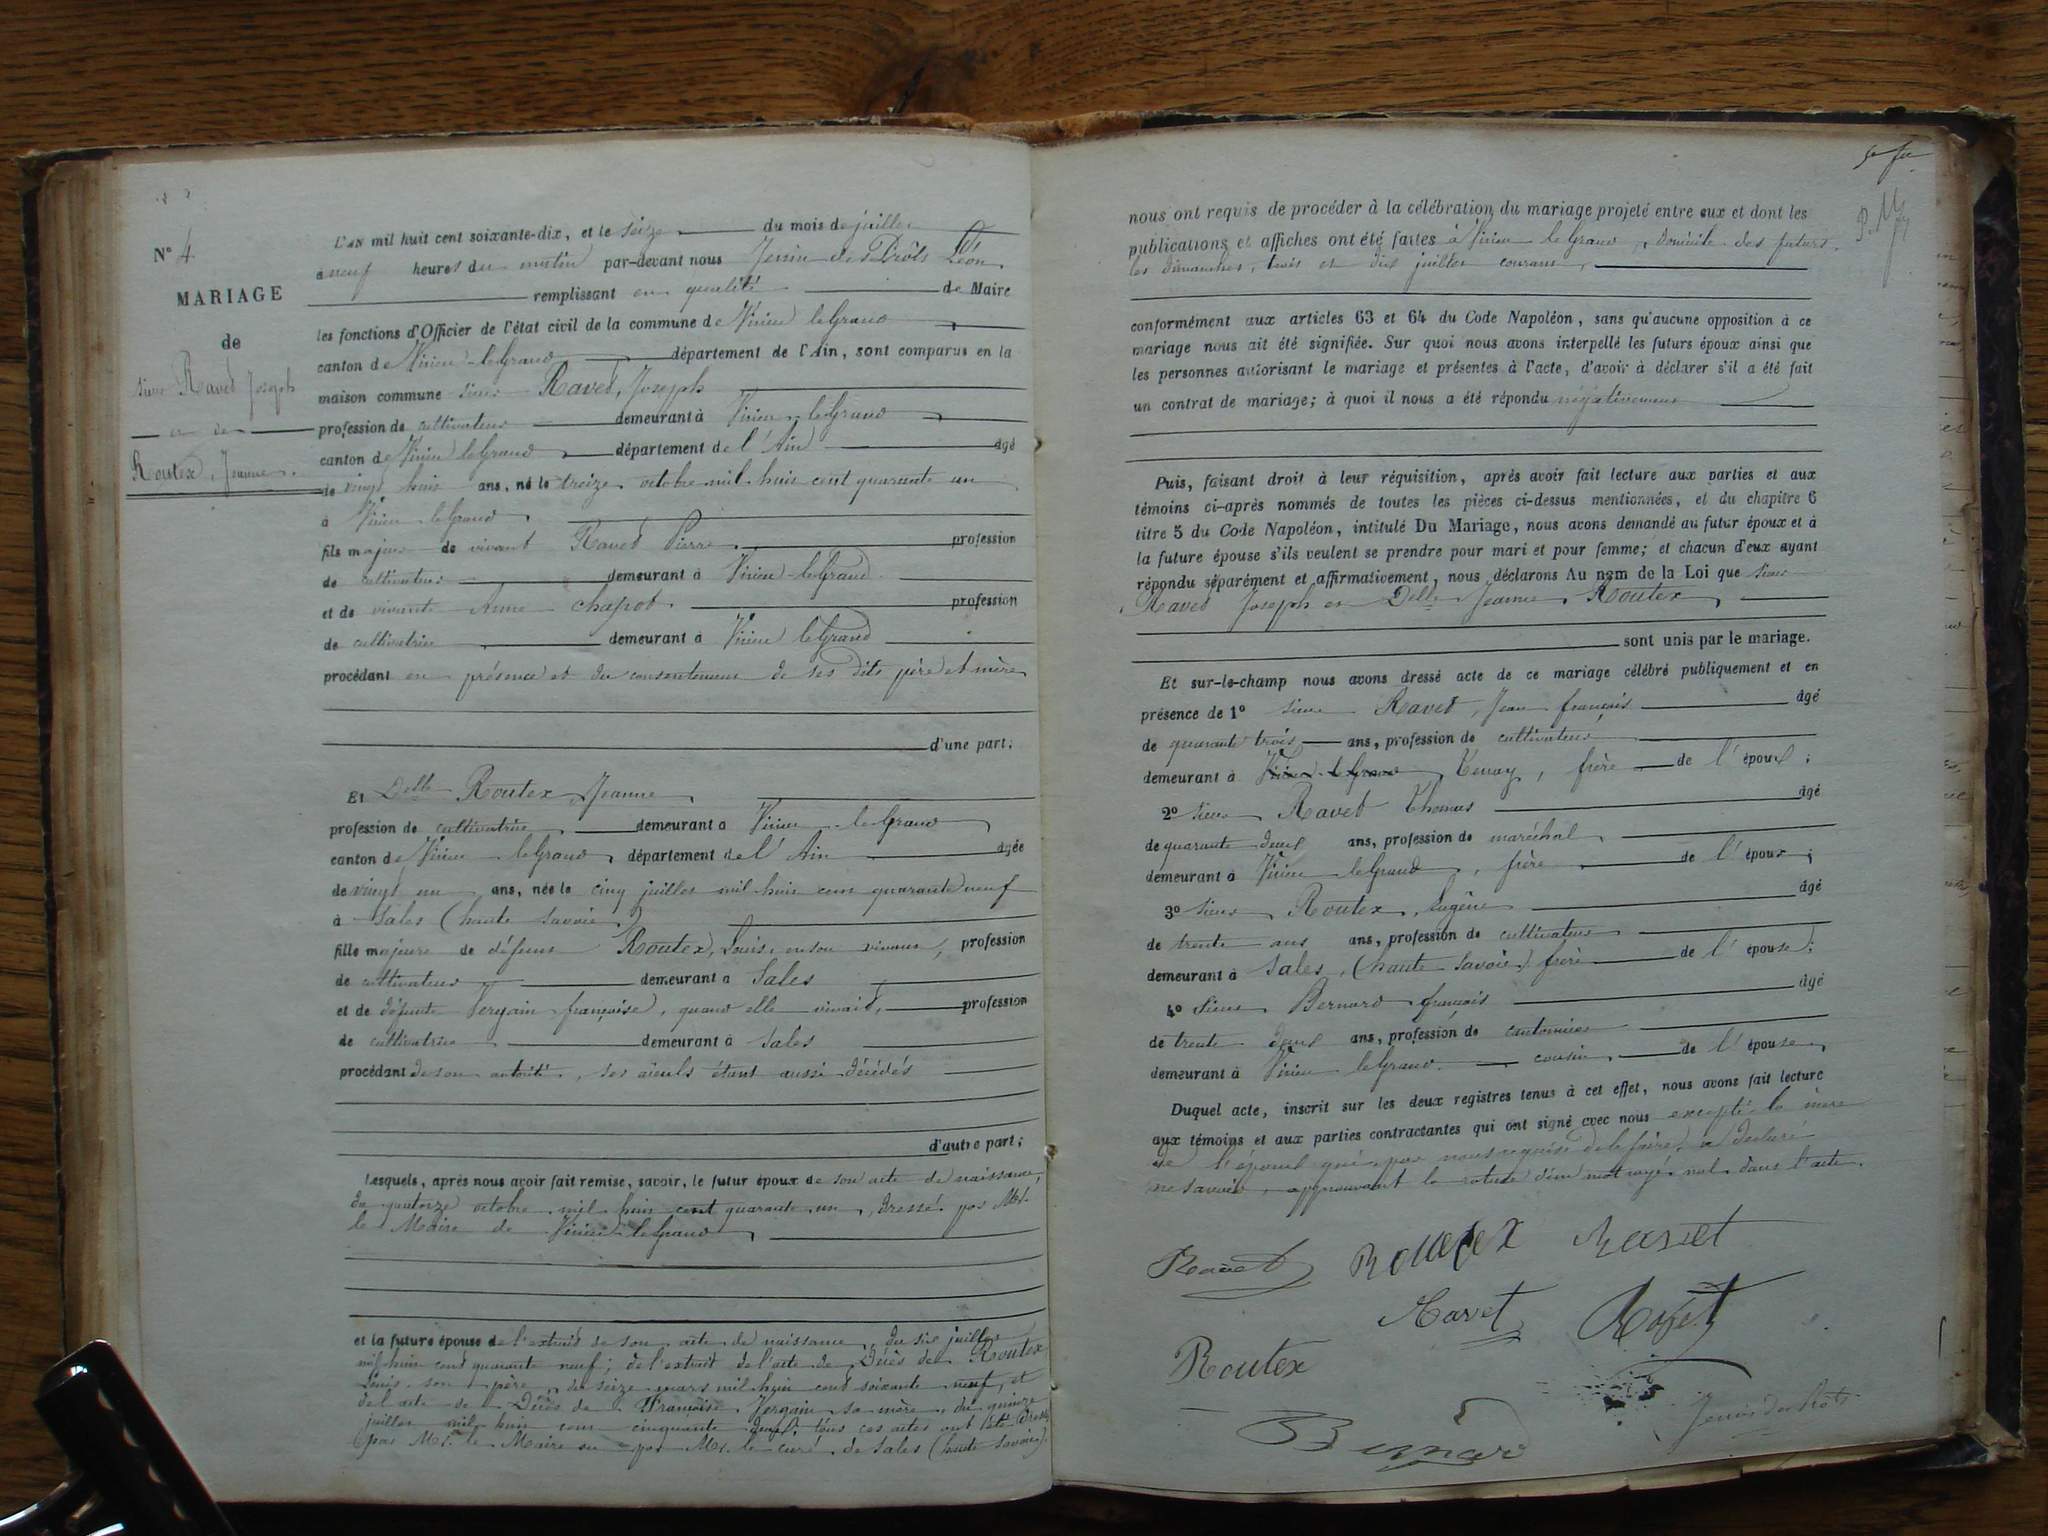 N° 4
MARIAGE
de
sieur Ravet Joseph
et de
Routex, Jeanne.
L'AN mil huit cent soixante-dix, et le seize du mois de juillet
à neuf heures du matin par-devant nous Léon
remplissant en qualité de Maire
les fonctions d'Officier de l'état civil de la commune de Virieu le Grand
canton de Virieu-le Grand département de l'Ain, sont comparus en la
maison commune sieur Ravet, Joseph
profession de cultivateur demeurant à Virieu-le Grand
canton de Virieu le Grand département de l'Ain âgé
de vingt huit ans, né le treize octobre mil huit cent quarante un
à Virieu le Grand
fils majeur de vivant Ravet Pierre profession
de cultivateur demeurant à Virieu-le Grand
et de vivante Anne Chapot profession
de cultivatrice demeurant à Virieu le Grand
procédant en présence et du consentement de ses dits père et mère
d'une part;
Et Delle Routex Jeanne
profession de cultivatrice demeurant à Virieu-le Grand
canton de Virieu le Grand département de l'Ain âgée
de vingt un ans, née le cinq juillet mil huit cent quarante neuf
à Sales (haute Savoie)
fille majeure de défunt Routex, Louis, en son vivant, profession
de cultivateur demeurant à Sales
et de défunte Vergain françoise, quand elle vivait, profession
de cultivatrice demeurant à Sales
procédant de son autorité, ses aïeuls étant aussi décédés
d'autre part;
Lesquels, après nous avoir fait remise, savoir, le futur époux de son acte de naissance,
du quatorze octobre mil huit cent quarante un, dressé par Mr.
le Maire de Virieu-le Grand
et la future épouse de l'extrait de son acte de naissance, du six juillet
mil huit cent quarante neuf; de l'extrait de l'acte de Décès de Routex
Louis son père, du seize mars mil huit cent soixante neuf, et
de l'acte de Décès de Françoise Vergain sa mère, du quinze
juillet mil huit cent cinquante deux, tous ces actes ont été dressés
par Mr. le Maire ou par Mr. le curé de Sales (haute Savoie).
nous ont requis de procéder à la célébration du mariage projeté entre eux et dont les
publications et affiches ont été faites à Virieu le Grand, domicile des futurs,
les dimanches, trois et dix juillet courant,
conformément aux articles 63 et 64 du Code Napoléon, sans qu'aucune opposition à ce
mariage nous ait été signifiée. Sur quoi nous avons interpellé les futurs époux ainsi que
les personnes autorisant le mariage et présentes à l'acte, d'avoir à déclarer s'il a été fait
un contrat de mariage; à quoi il nous a été répondu négativement
Puis, faisant droit à leur réquisition, après avoir fait lecture aux parties et aux
témoins ci-après nommés de toutes les pièces ci-dessus mentionnées, et du chapitre 6
titre 5 du Code Napoléon, intitulé Du Mariage, nous avons demandé au futur époux et à
la future épouse s'ils veulent se prendre pour mari et pour femme; et chacun d'eux ayant
répondu séparément et affirmativement, nous déclarons Au nom de la Loi que sieur
Ravet Joseph et Delle Jeanne Routex
sont unis par le mariage.
Et sur-le-champ nous avons dressé acte de ce mariage célébré publiquement et en
présence de 1° sieur Ravet, Jean françois âgé
de quarante trois ans, profession de cultivateur
demeurant à Virieu-le Grand Tenay, frère de l'époux;
2° sieur Ravet Thomas âgé
de quarante deux ans, profession de maréchal
demeurant à Virieu le Grand, frère de l'époux;
3° sieur Routex, Eugène âgé
de trente ans ans, profession de cultivateur
demeurant à Sales, (haute Savoie) frère de l'épouse;
4° sieur Bernard françois âgé
de trente deux ans, profession de cantonnier
demeurant à Virieu le Grand cousin de l'épouse
Duquel acte, inscrit sur les deux registres tenus à cet effet, nous avons fait lecture
aux témoins et aux parties contractantes qui ont signé avec nous excepté la mère
de l'époux qui par nous requise de le faire, a déclaré
ne savoir, approuvant la rature d'un mot rayé nul dans l'acte.
Ravet Routex Ravet
Ravet Ravet
Routex
Bernard